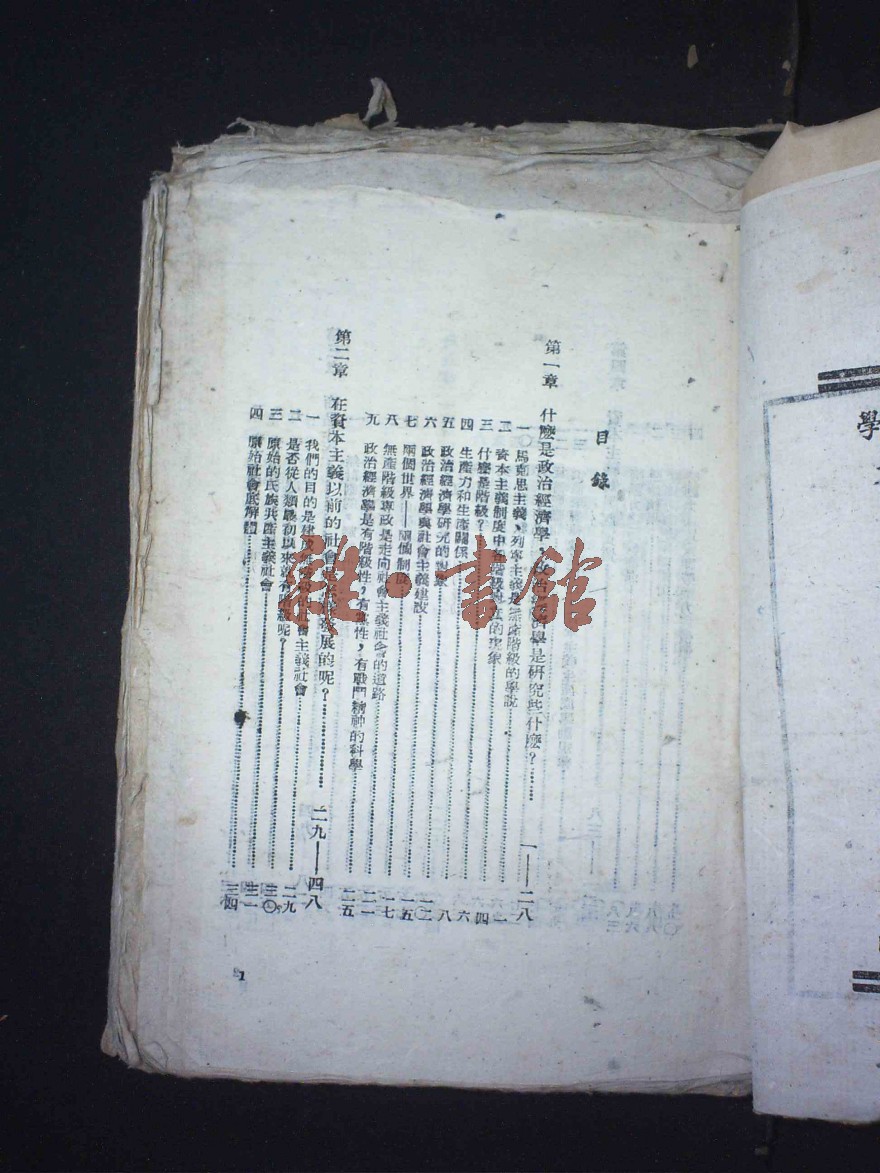 學
目錄
第一章 什麽是政治經濟學,政治經濟學是研究些什麽?…………一——二八
一 馬克思主義、列寧主義是無產階級的學說…………一
二 資本主義制度中各階級的現象…………二
三 什麽是階級?…………四
四 生產力和生產關係…………六
五 政治經濟學研究的對象…………八
六 政治經濟學與社會主義建設…………一二
七 兩個世界——兩個制度…………一五
八 無產階級專政是走向社會主義社會的道路…………一七
九 政治經濟學是有階級性,有黨性,有戰鬥精神的科學…………二五
第二章 在資本主義以前的社會是發展的呢?…………二九——四八
一 我們的目的是建成無階級的社會主義社會…………二九
二 是否從人類最初以來就有階級呢?…………三〇
三 原始的氏族共產主義社會…………三一
四 原始社會底解體…………三四
1
雜·書館